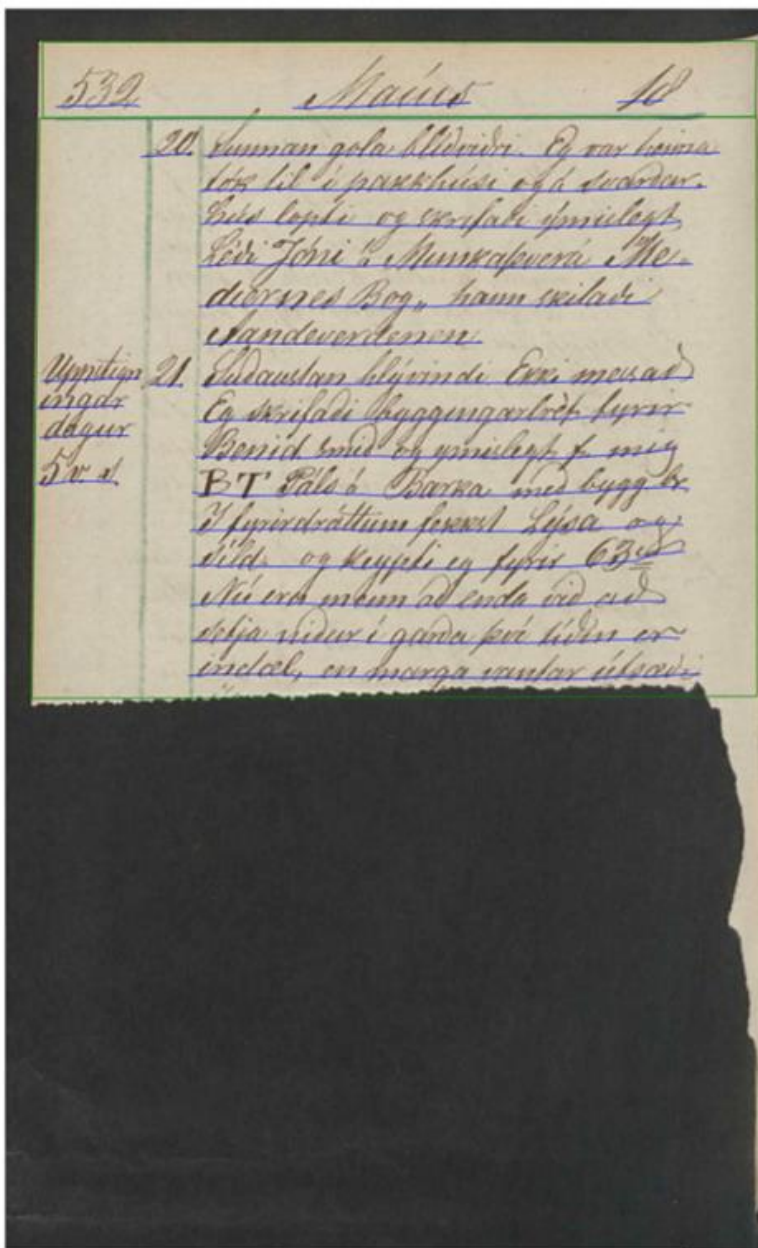 532 Maíus 18
20. Sunnan gola blíðviðri. Eg var heima
tók til í pakkhúsi og á svardar-
hús lopti og skrifaði ýmislegt
Léði Jóni á Munkaþverá "Me-
diernes Bog„ hann skilaði
Aandeverdenen
Uppstign
ingar
dagur
5 v. s.
21. Suðaustan hlývindi Ekki messað
Eg skrifaði byggingarbréf fyrir
Benid smið og ymislegt f. mig
BT Páls á Barka með bygg br.
I fyrirdráttum fekkst Lýsa og
síld. og keypti eg fyrir 63
Nú eru menn að enda við að
setja niður í garda því tíðin er
indæl, en marga vantar útsæði